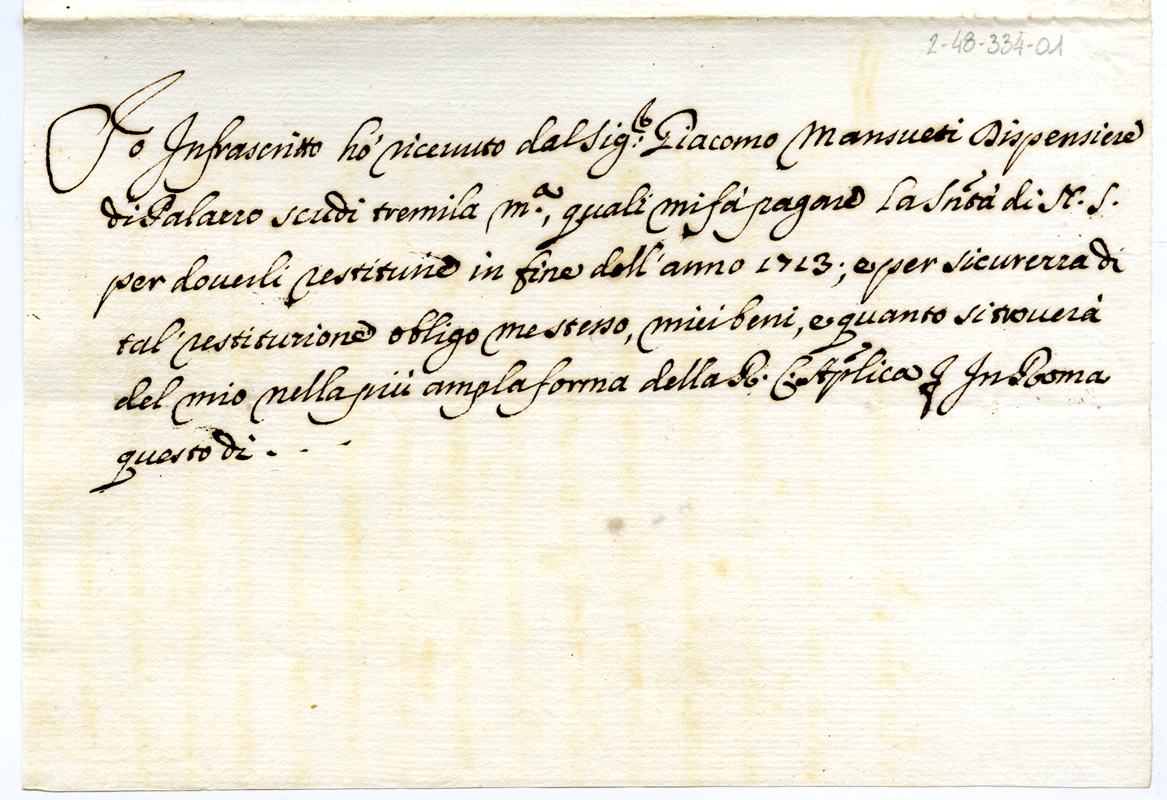 2-48-334-01
Io Infrascritto hò riceuuto dal Sig.re Giacomo Mansueti Dispensiere
di Palazzo scudi tremila m.a, quali mi fà pagare la Sñtà di N. S.
per douerli restituire in fine dell'anno 1713; e per sicurezza di
tal restituzione obligo me stesso, miei beni, e quanto si trouerà
del mio nella più ampla forma della R. C. Aplica In Roma
questo dì . . -